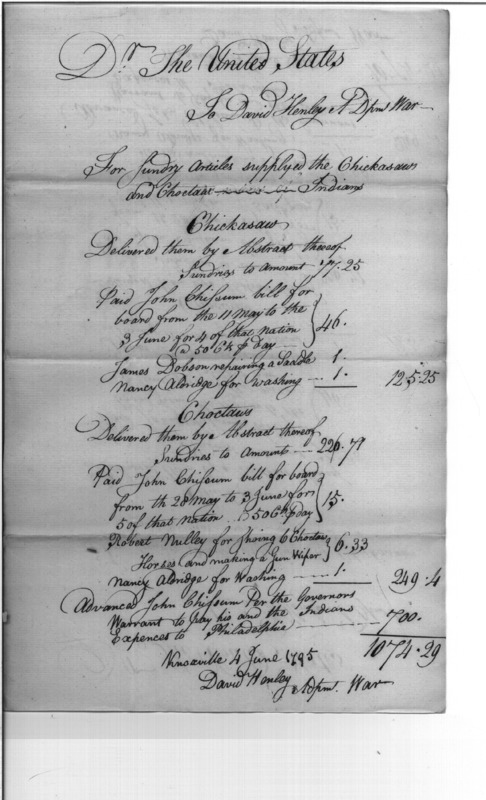 Dr The United States
To David Henley A Dpmt War
For Sundry Articles supplyed the Chickasaw
and Choctaw Indians
Chickasaw
Delivered them by Abstract thereof
Sundries to amount 77.25
Paid John Chissum bill for
board from the 11 May to the
3 June for 4 of that nation
@ 50 Cts p day 46.
James Dobson repairing a Saddle 1.
Nancy Aldridge for washing 1. 125.25
Choctaws
Delivered them by Abstract thereof
Sundries to Amount 226.71
Paid John Chissum bill for board
from th 28 May to 3 June for
5 of that nation 50 Cts p day 15.
Robert Nulley for shoing 6 Choctaw
Horses and making a Gun Wiper 6.33
Nancy Aldridge for Washing 1. 249.4
Advanced John Chissum Per the Governors
Warrant to pay his and the Indians
Expences to Philadelphia 700.
1074.29
Knoxville 4 June 1795
David Henley
A Dpmt. War